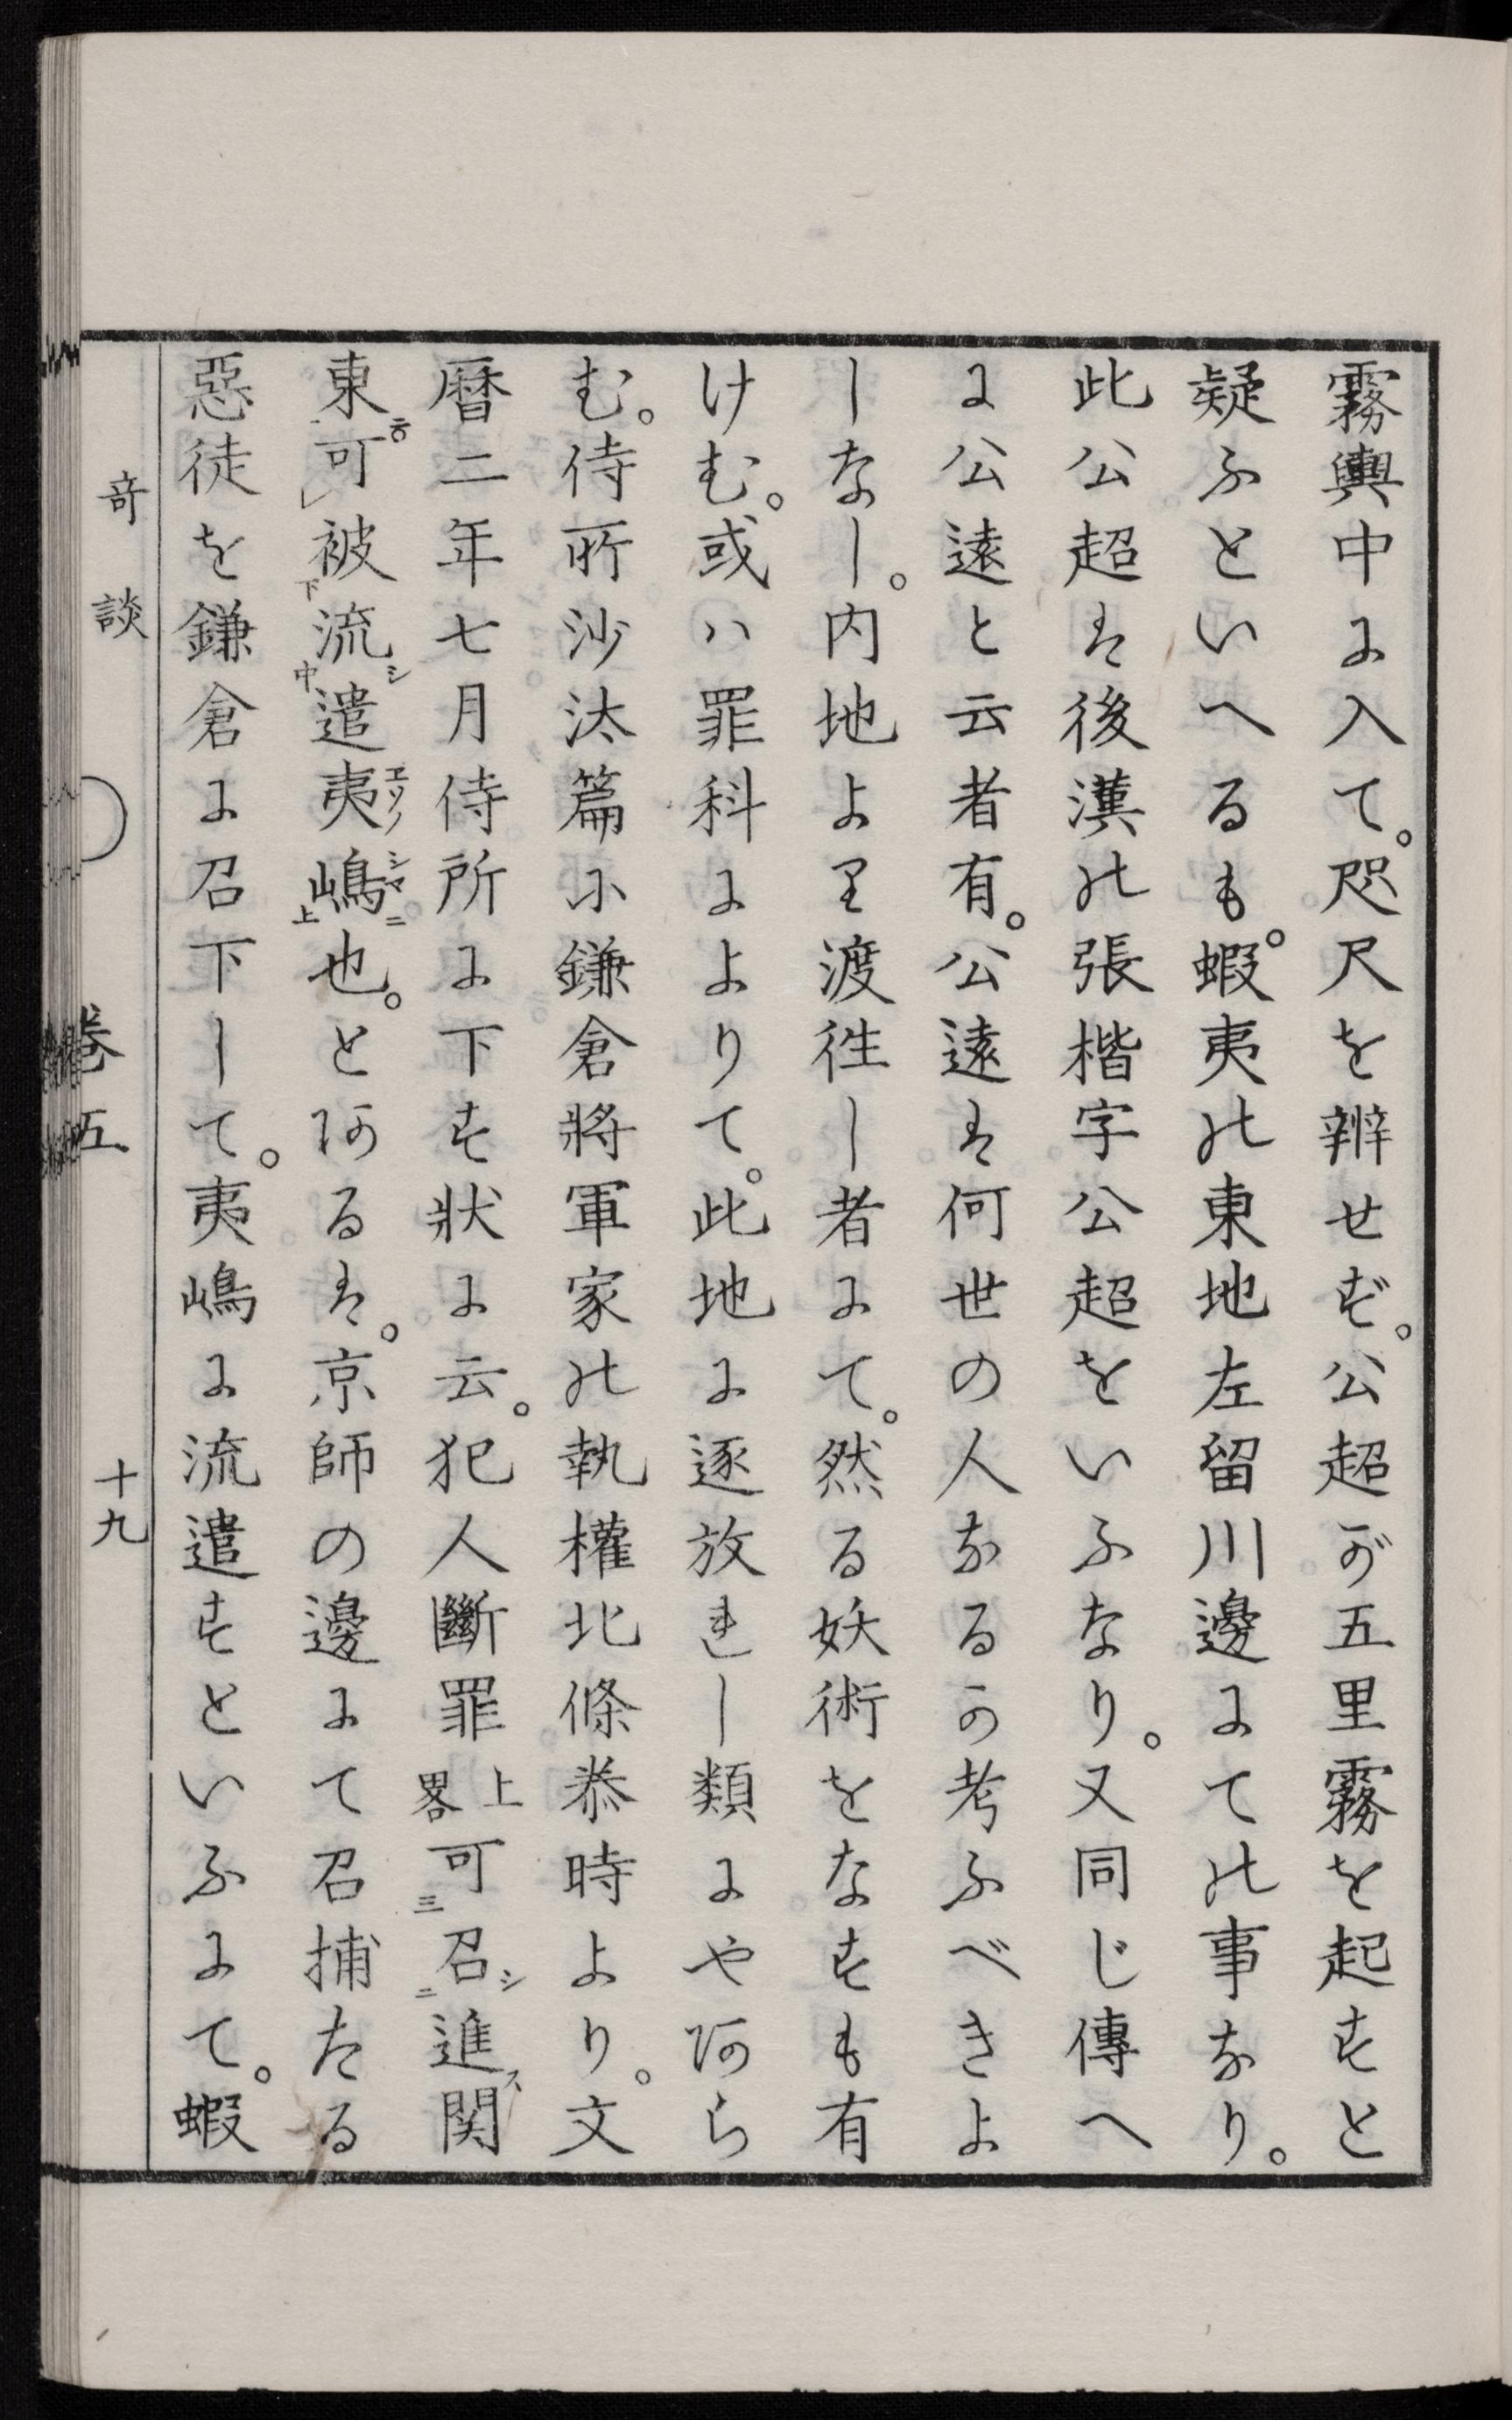 霧輿中に入て。咫尺を辨せず。公超が五里霧を起すと
疑ふといへるも。蝦夷の東地左留川邊にての事なり。
此公超は後漢の張楷字公超をいふなり。又同じ傳へ
に公遠と云者有。公遠は何世の人なるか考ふべきよ
しなし。内地より渡徃し者にて。然る妖術をなすも有
けむ。或ハ罪科によりて。此地に逐放れし類にやあら
む。侍所沙汰篇に鎌倉將軍家の執權北條恭時より。文
暦二年七月侍所に下す狀に云。犯人斷罪上畧可三召シ二進ス関
東一ニ。可レ被下流シ中遣夷エゾノ嶋シマニ上也。とあるは。京師の邊にて召捕たる
惡徒を鎌倉に召下して。夷嶋に流遣すといふにて。蝦
奇談　卷五　十九